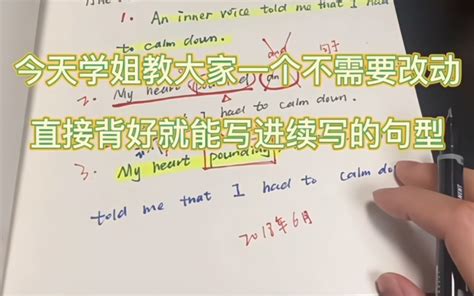 1. An inner voice told me that I had
to calm down.
and
今天学姐教大家一个不需要改动
2. My heart pounded an 句子
I had to calm down.
直接背好就能写进续写的句型
3. My heart pounding
told me that I had to calm do
2018年6月